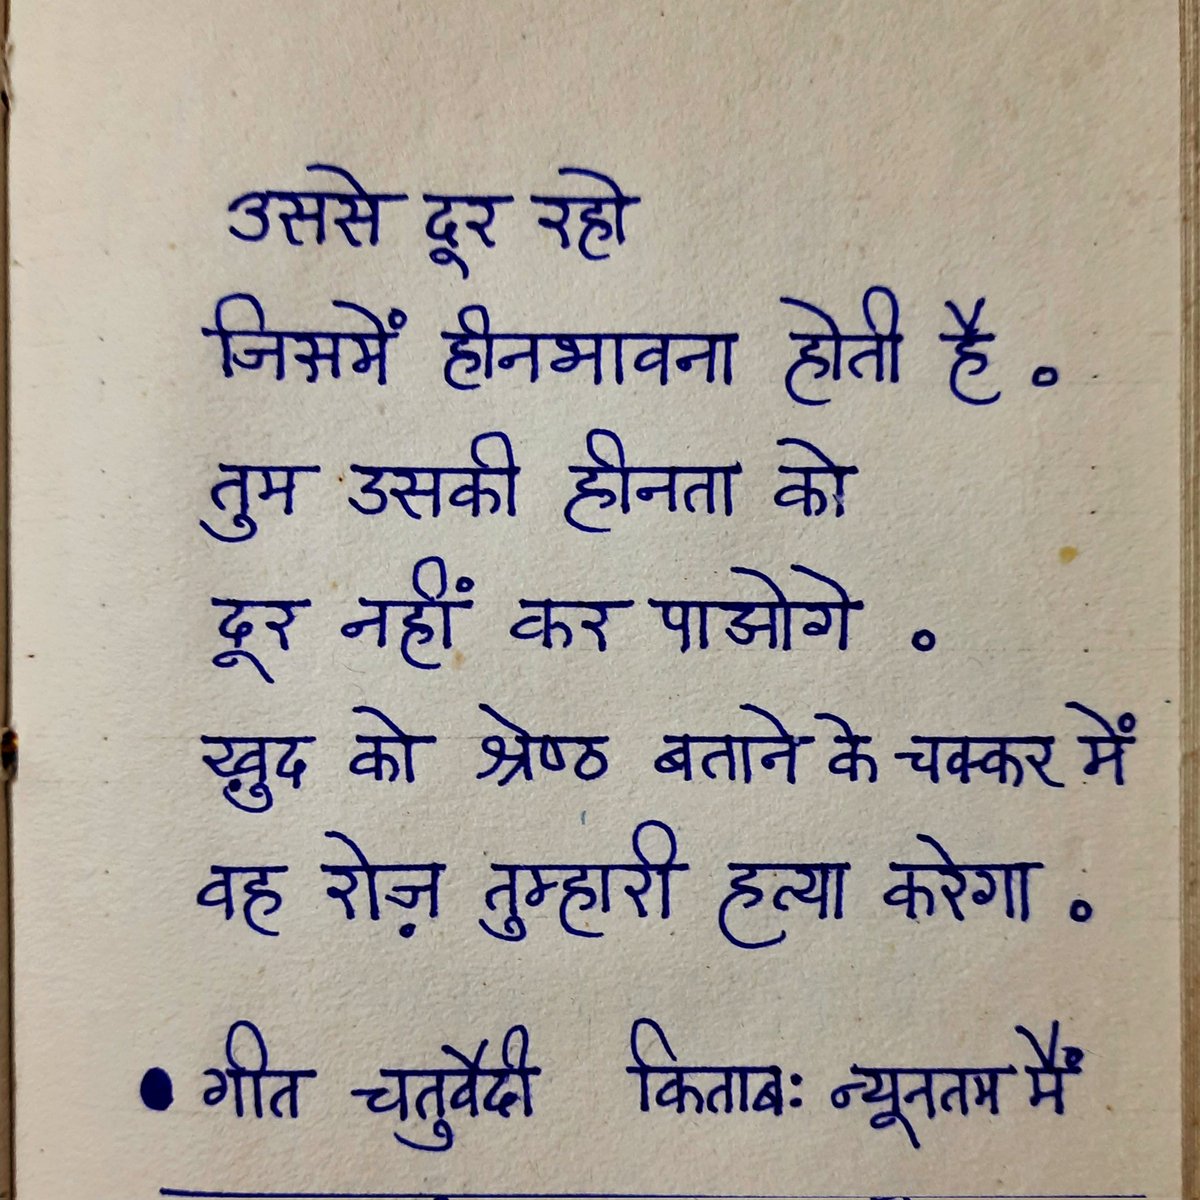 उससे दूर रहो
जिसमें हीनभावना होती है .
तुम उसकी हीनता को
दूर नहीं कर पाओगे .
ख़ुद को श्रेष्ठ बताने के चक्कर में
वह रोज़ तुम्हारी हत्या करेगा .
• गीत चतुर्वेदी किताब: न्यूनतम मैं